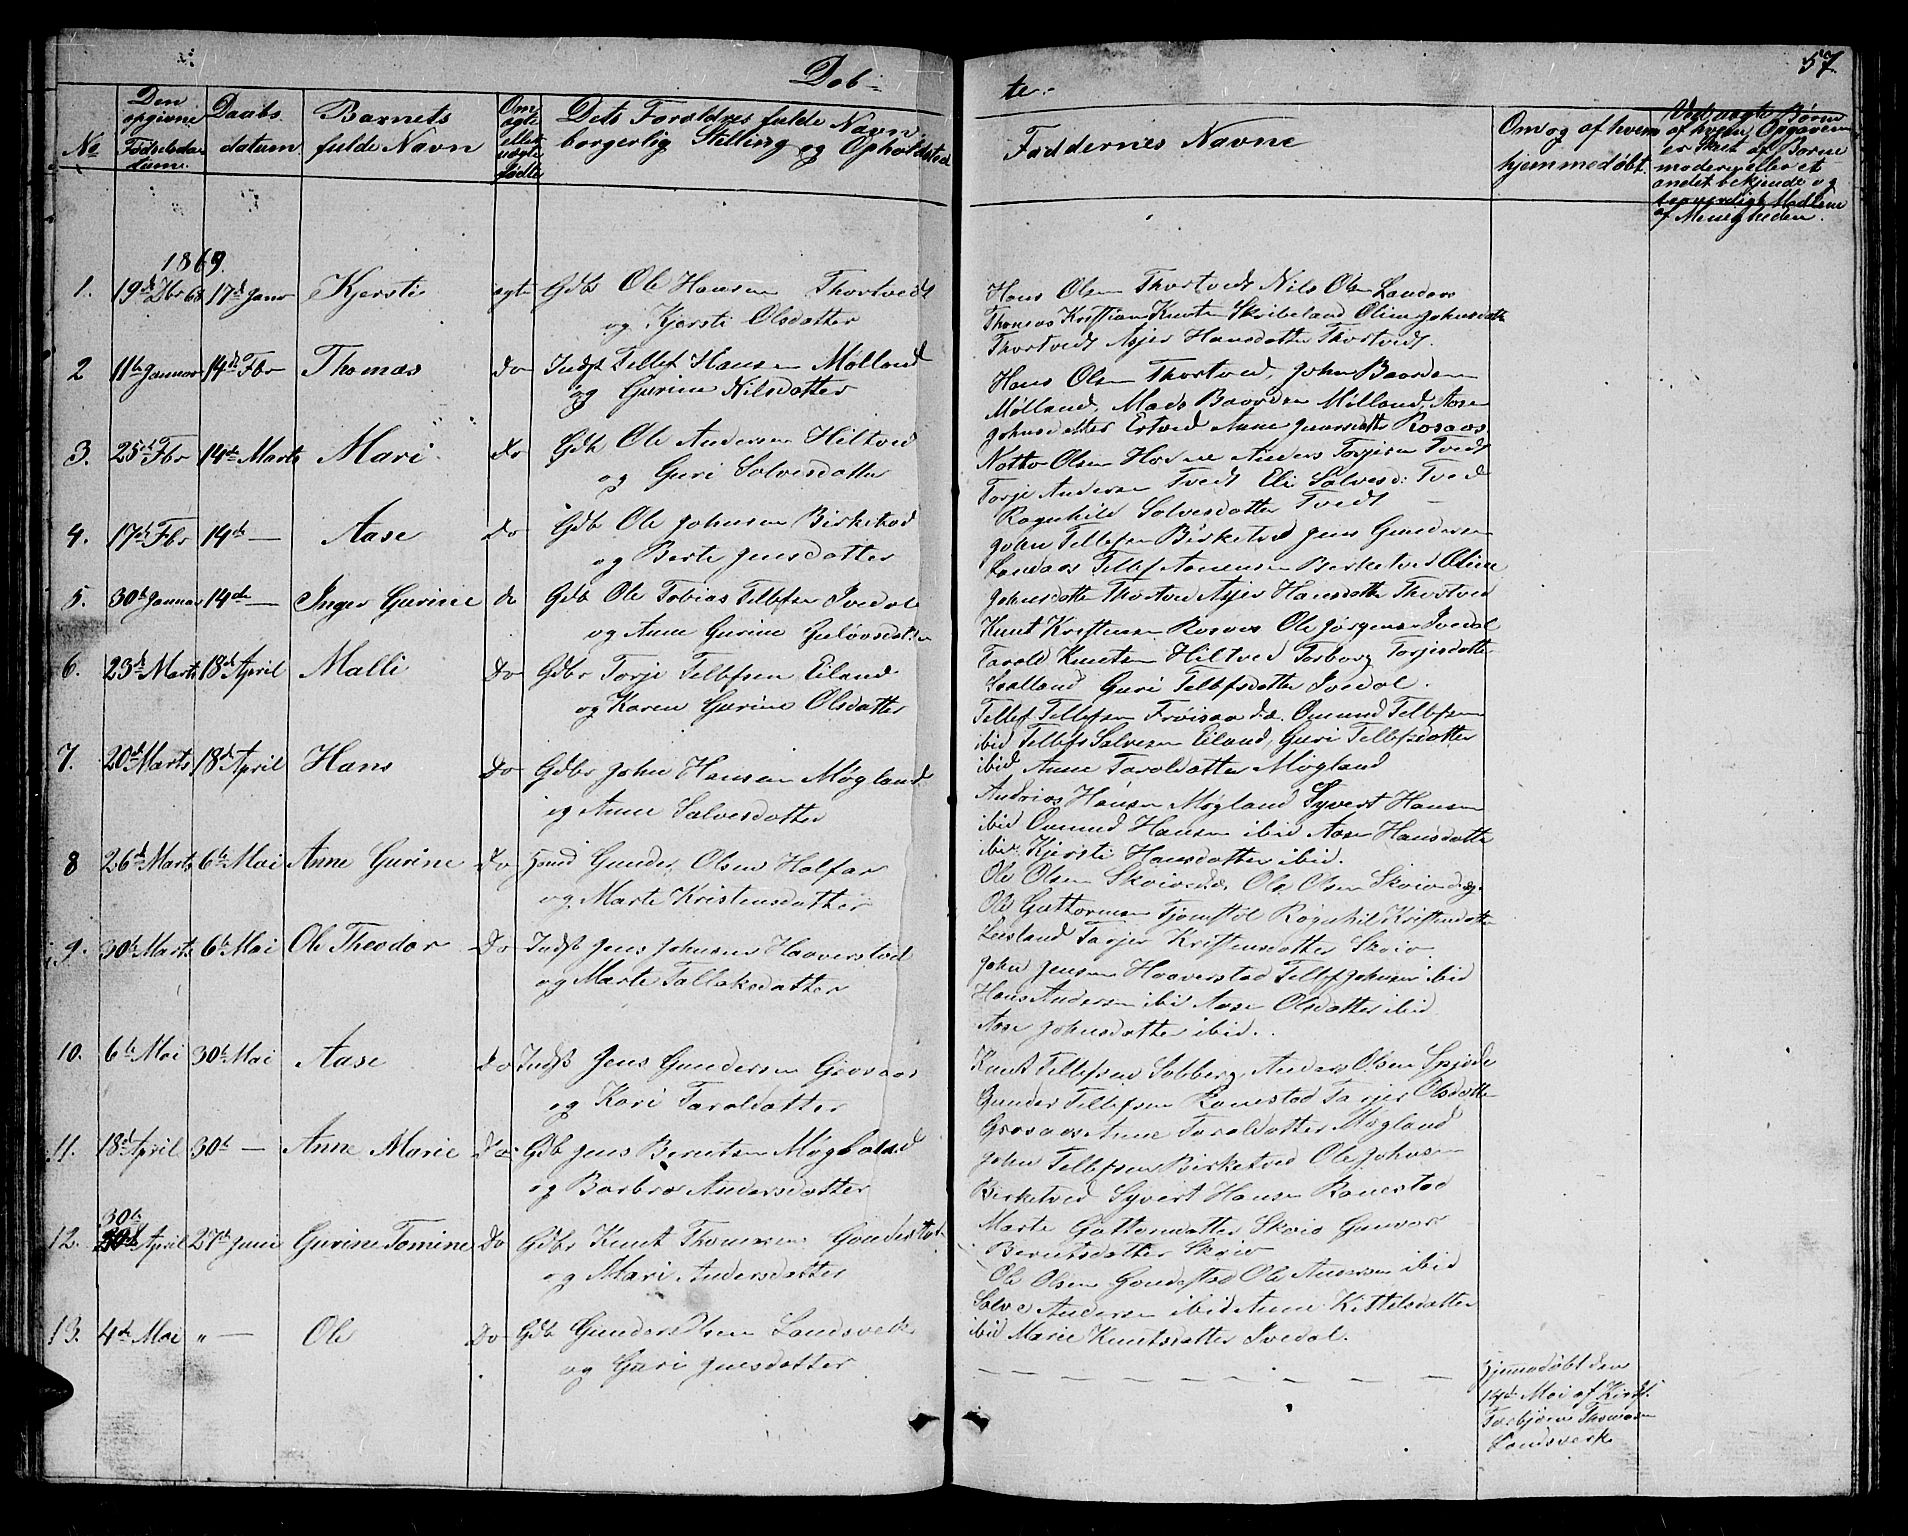 57
Døb- te.
No
Den opgivne Fødselsdatum.
Daabs datum
Barnets fulde Navn
Om ægte eller uægte fødte
Dets Forældres fulde Navn, borgerlig Stilling og Opholdssted
Faddernes Navne
Om og af hvem hjemmedøbt.
Ved uægte Børn af hvem Opgaven er skeet af Barnemoderen eller et andet bekjendt og troværdigt Medlem af Menigheden.
1869.
1. 19de Dbr 68 17de Janr Kjersti ægte Gdb Ole Hansen Thortvedt
og Kjersti Olsdatter
Hans Olsen Thortvedt Nils Olsen Landaas
Thomas Kristian Knuts Skribeland Oline Johnsdatt
Thortvedt Asjer Hansdatter Thortvedt.
2 11te Januar 14de Fbr Thomas Do Indst Tellef Hansen Mølland
og Gurine Nilsdatter
Hans Olsen Thortved, John Baardsen
Mølland, Mads Baardsen Mølland, Aase
Johnsdatter Ertved Anne Gunnarsdatt Rosaas
3. 25de Fbr 14de Marts Mari do Gdb Ole Andersen Hiltved
og Guri Salvesdatter
Notto Olsen Anders Torjesen Tvedt
Torje Andersen Tvedt Eli Salvesd: Tved
Ragnhild Salvesdatter Tvedt
4. 17de Fbr 14de — Aase Do Gdb Ole Johnsen Birketvad
og Berte Jensdatter
John Tellefsen Birketved Jens Gundersen
Landaas Tellef Aanensen Birketved Oline
Johnsdatte Thortved Asjer Hansdatte Thortved
5. 30te Januar 14de — Inger Gurine do Gdb Ole Tobias Tellefsen Ivedal
og Anne Gurine Guløvsdatter
Knut Kristensen Rosaas Ole Jørgensen Ivedal
Tarald Knutsen Hiltved Torborg Torjesdatter
Guri Tellefsdatter Ivedal.
6. 23de Marts 18de April Malli Do Gdbr Torje Tellefsen Eiland
og Karen Gurine Olsdatter
Tellef Tellefsen Frøisaa Omund Tellefsen
ibid Tellef Salvesen Eiland, Guri Tellefsdatter
ibid Anne Taraldsdatter Møgland
7. 20de Marts 18de April Hans Do Gdbr John Hansen Møgland
og Anne Salvesdatter
Andreas Hansen Møgland Syvert Hansen
ibid Omund Hansen ibid Aase Hansdatte
ibid. Kjersti Hansdatter ibid.
8 26de Marts 6te Mai Anne Gurine Do Gunder Olsen Halfar
og Marte Kristensdatter
Ole Olsen Ole Olsen
Ole Guttormsen Tjomstøl Ragnhil Kristensdatte
Leesland Tarjer Kristensdatter Skoiv
9. 30te Marts 6te Mai Ole Theodor Do Indst Jens Johnsen Haaverstad
og Marte Tallaksdatter
John Jensen Haaverstad Tellef Johnsen ibid
Hans Andersen ibid Aase Olsdatter ibid
Aase Johnsdatter ibid.
10. 6te Mai 30te Mai Aase Do Indst Jens Gundersen Grosaas
og Kari Taraldsdatter
Knut Tellefsen Sobberg Anders Olsen
Gunder Tellefsen Ranestad Tarjer Olsdatte
Grosaas Anne Taraldsdatter Møgland
11. 18de April 30te — Anne Marie Do Gdb Jens Berntsen Møgland
og Barbro Andersdatter
John Tellefsen Birketved Ole Johnsen
Birketved Syvert Hansen Ranestad
Marte Guttormsdatter Skoiv Gunvor
Berntsdatter Skoiv
30te
12. 30te April 27de Juni Gurine Tomine Do Gdbr Knut Thomesen Gundestad
og Mari Andersdatter
Ole Olsen Gundestad Ole Andersen ibid
Salve Andersen ibid Anne Kittelsdatter
ibid Marie Knutsdatter Ivedal.
13. 4de Mai " — Ole Do Gdb Gunder Olsen Landsverk
og Guri Jensdatter
— — — — — — — — —
Hjemmedøbt den
14de Mai af Kirkes:
Torbjørn Thomasen
Landsverk